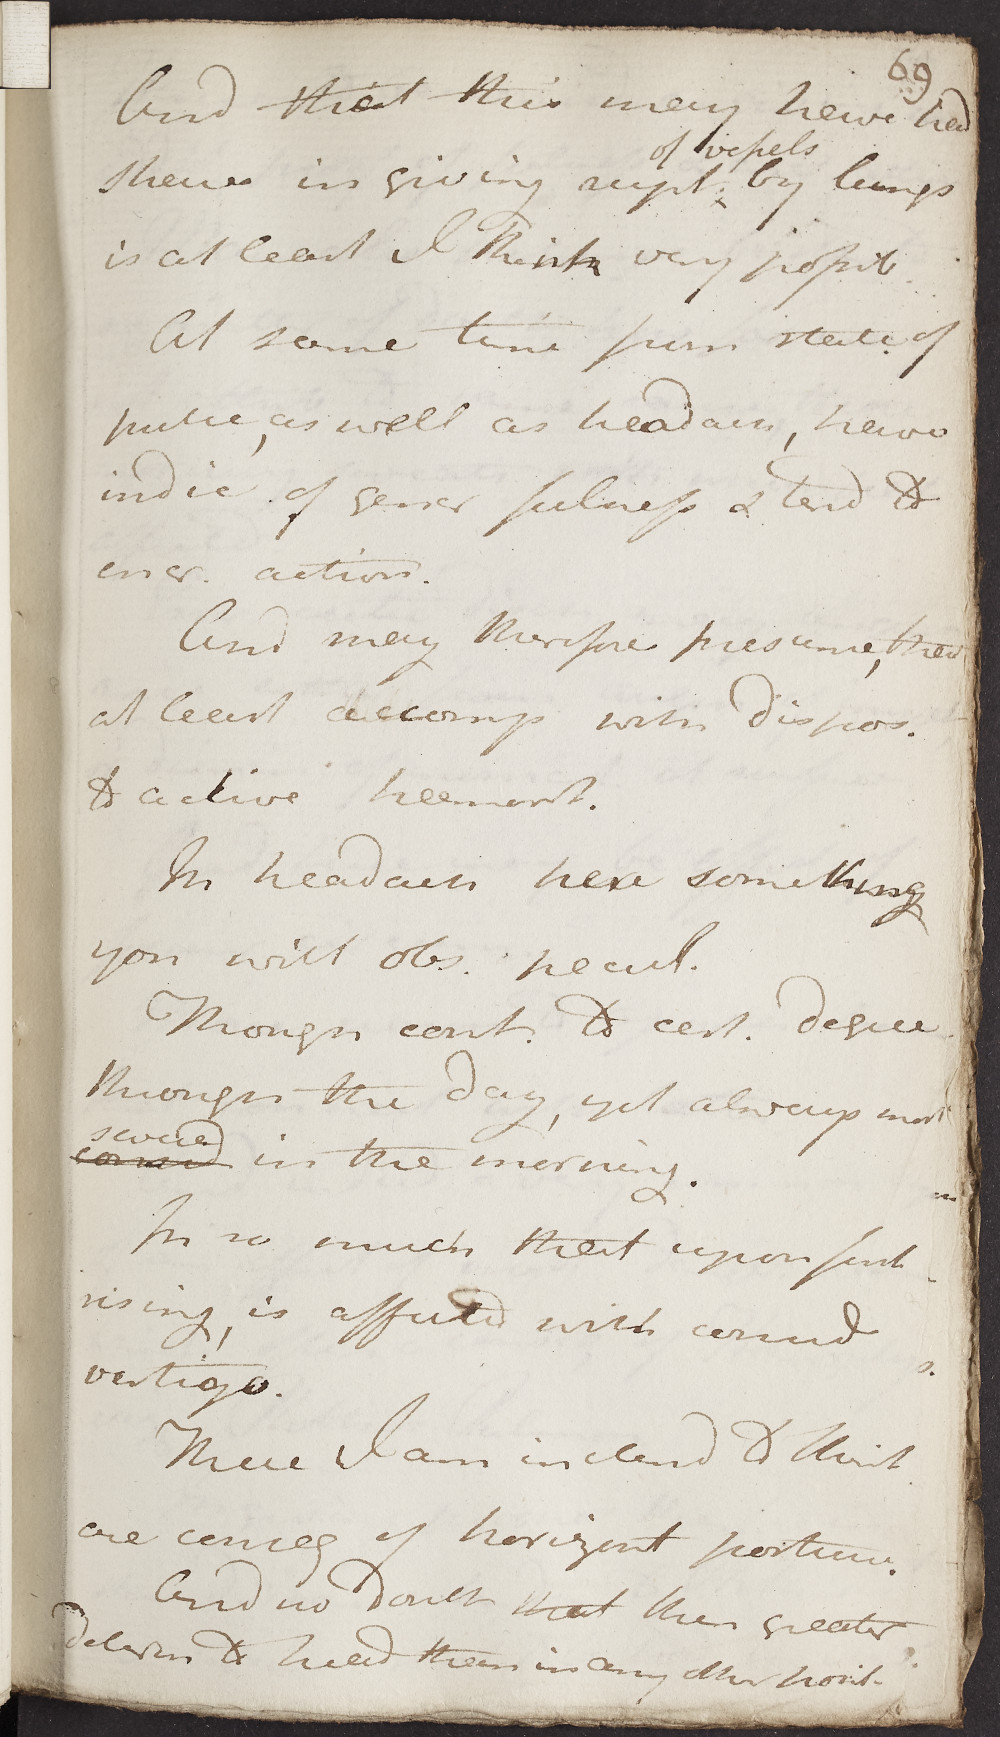 69
And that this may have had
of vessels
share in giving rupt. by lungs
is at least I think very possib.
At same time from state of
pulse, as well as headach, have
indic. of gener fulness & tend to
encr. action.
And may therefore presume, that
at least accomp with dispos.
to active hemorh.
In headach here something
you will obs. pecul.
Though cont. to cert. degree
through the day, yet always most
severe
in the morning.
In so much that upon first
rising, is affected with consid
vertigo.
These I am inclend to think
are conseq of horizont posture.
And no doubt that then greater
determ to head than in any other posit.